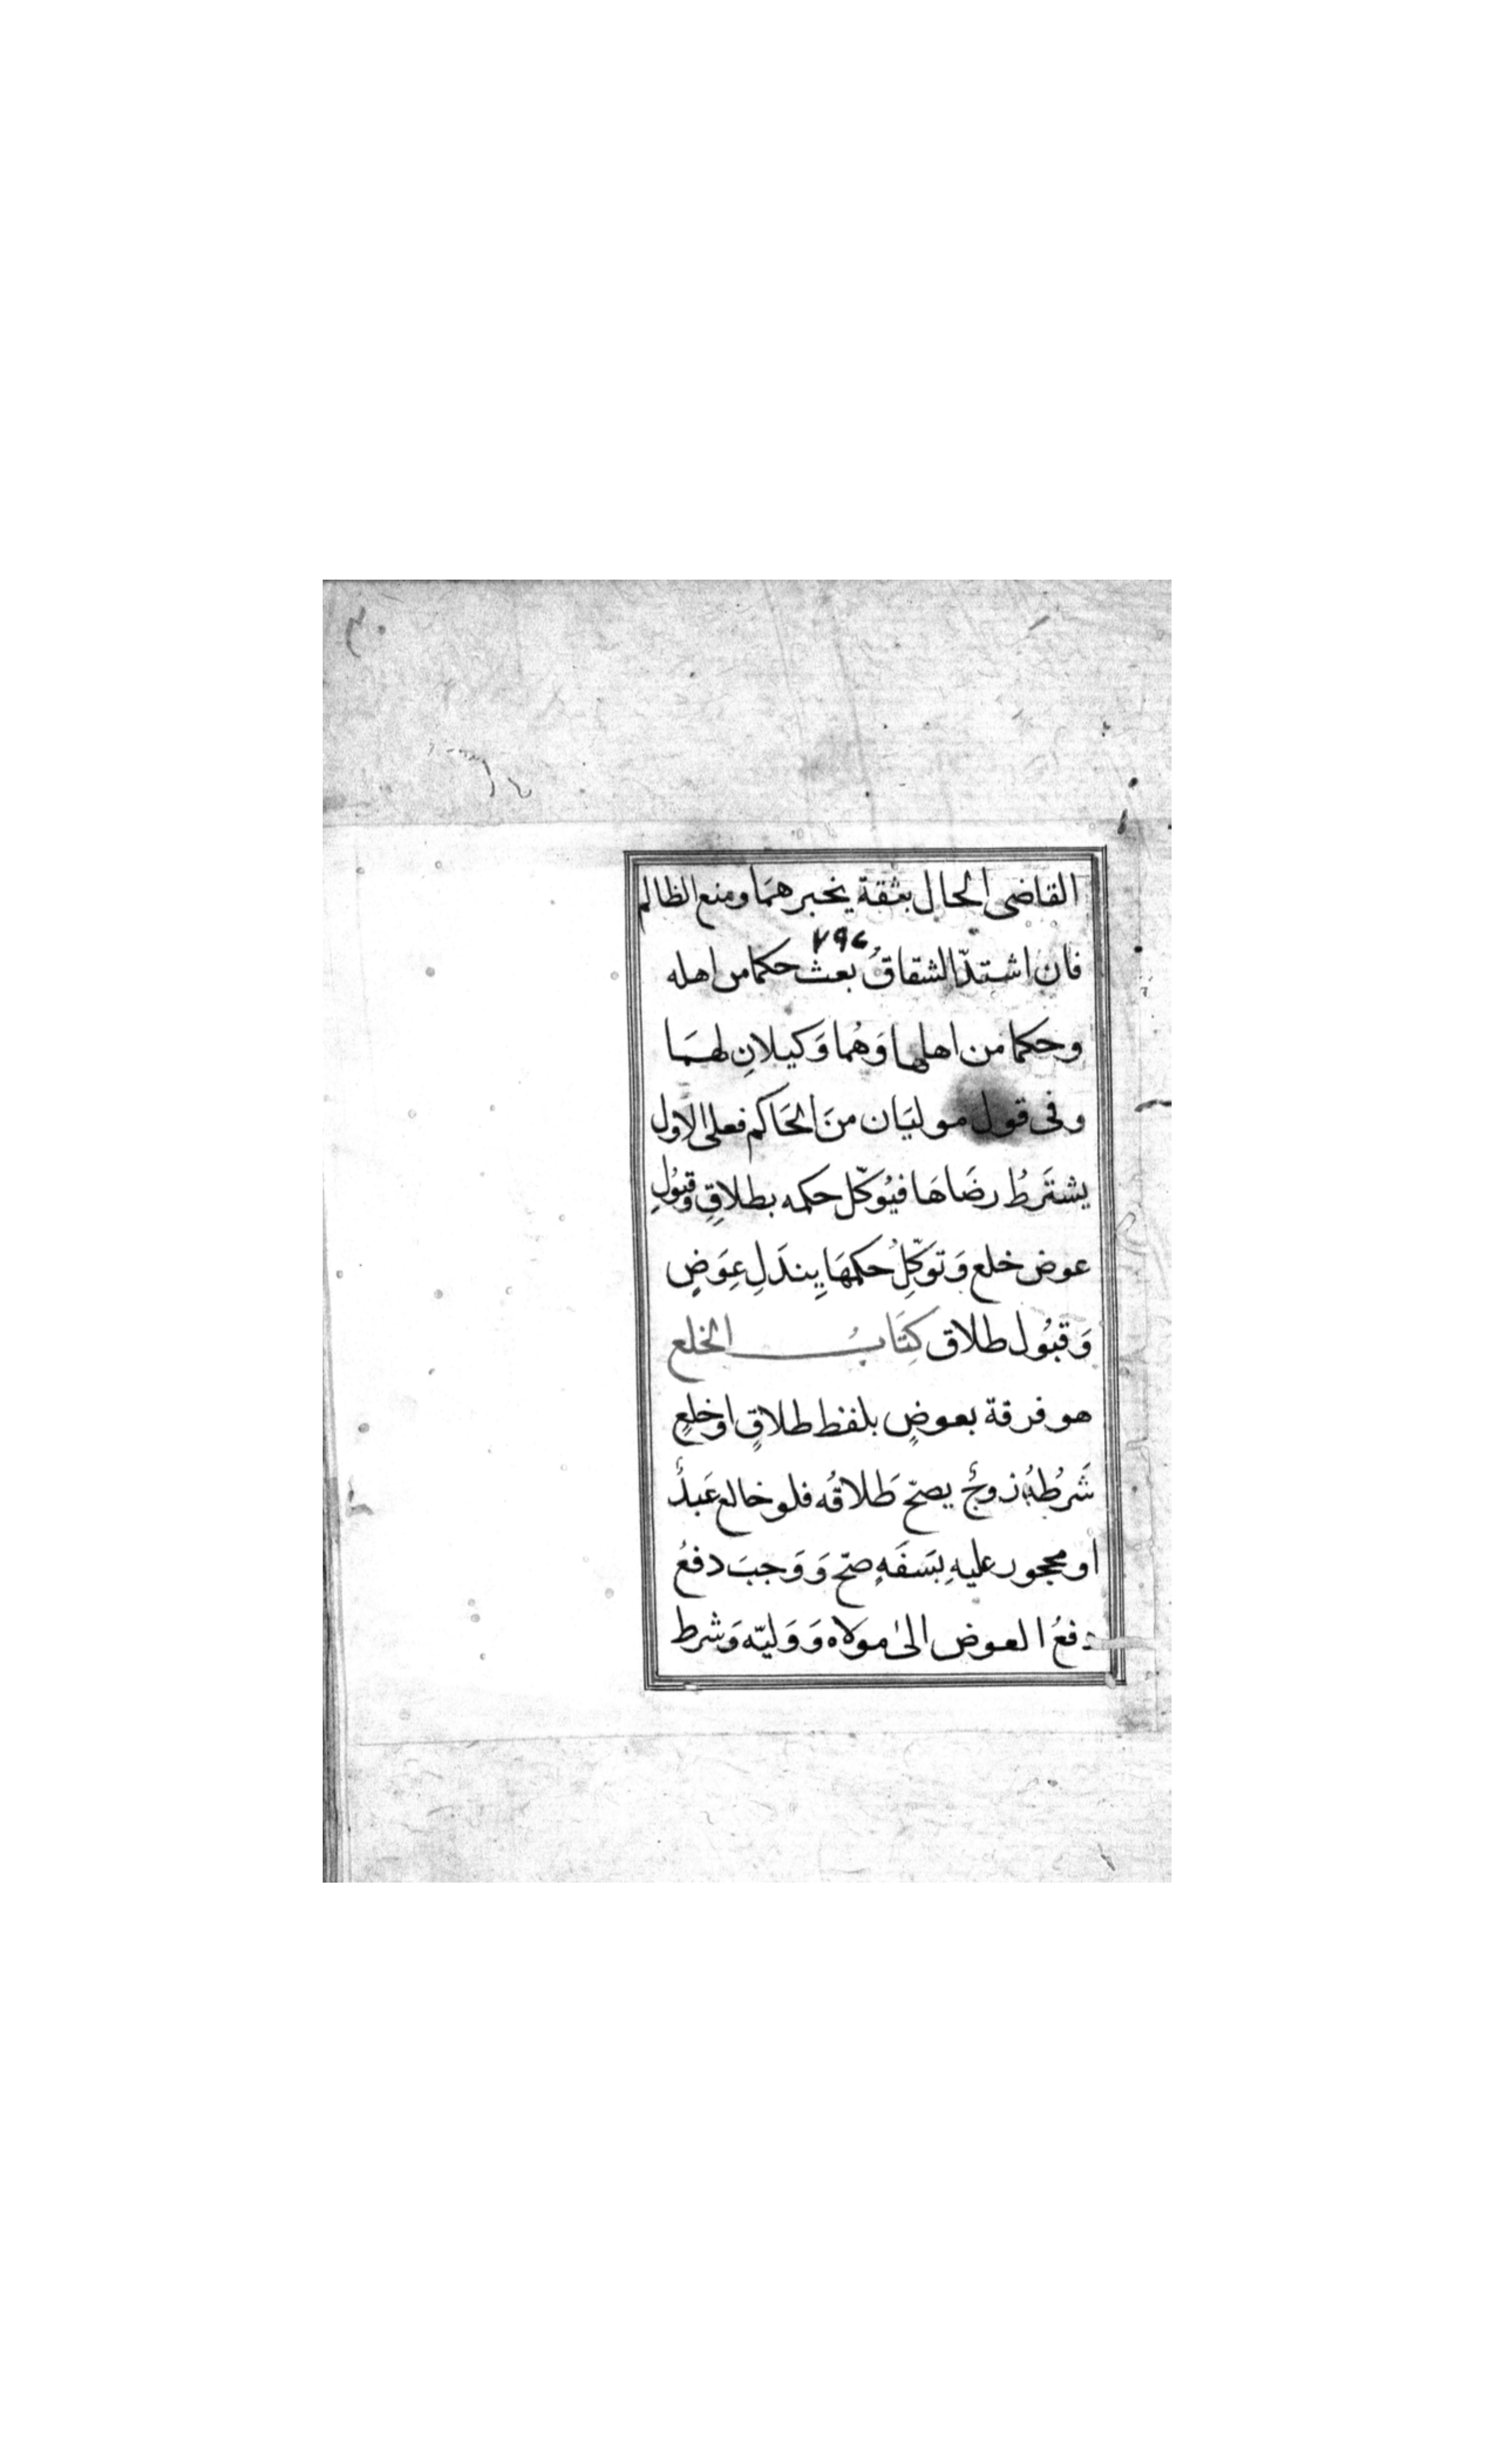 القاضى الحال بثقة يخبرهمَا ومنع الظالم
٧٩٤
فان اشتدّ الشقاقُ بعث حكما من اهله
وحكما من اهلها وَهُما وَكيلانِ لهمَا
وفى قول موليَان منَ الحَاكم فعلى الاول
يشترَطُ رضَاهَا فيُوكّل حكمه بطلاقٍ وقبُولِ
عوض خلع وَتوَكّلِ حكمهَا ببذلِ عِوَضٍ
وَقبُول طلاق كِتَابُ الخلع
هو فرقة بعوضٍ بلفظ طلاقٍ اوخلعٍ
شَرطُهُ زوجٌ يصحّ طَلاقُه فلو خالع عَبدٌ
او محجور عليهِ بسَفَهٍ صحّ وَوَجبَ دفعُ
دفعُ العوض الىٰ مولاه وَوَليّه وَشرط